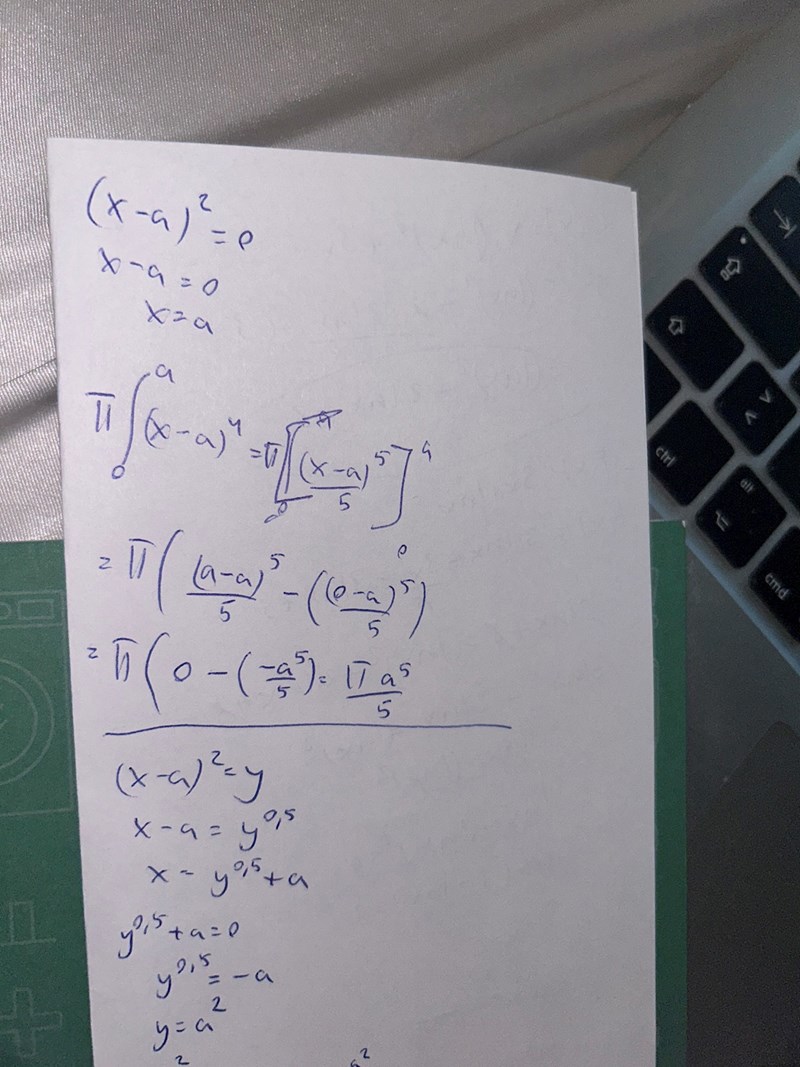 (x-a)² = 0
x-a = 0
x = a
π∫₀ᵃ (x-a)⁴ = π[(x-a)⁵/5]₀ᵃ
= π((a-a)⁵/5 - ((0-a)⁵/5)
= π(0 - (-a⁵/5) = πa⁵/5
(x-a)² = y
x-a = y^0,5
x = y^0,5 + a
y^0,5 + a = 0
y^0,5 = -a
y = a²
2 a²
ctrl
alt
cmd